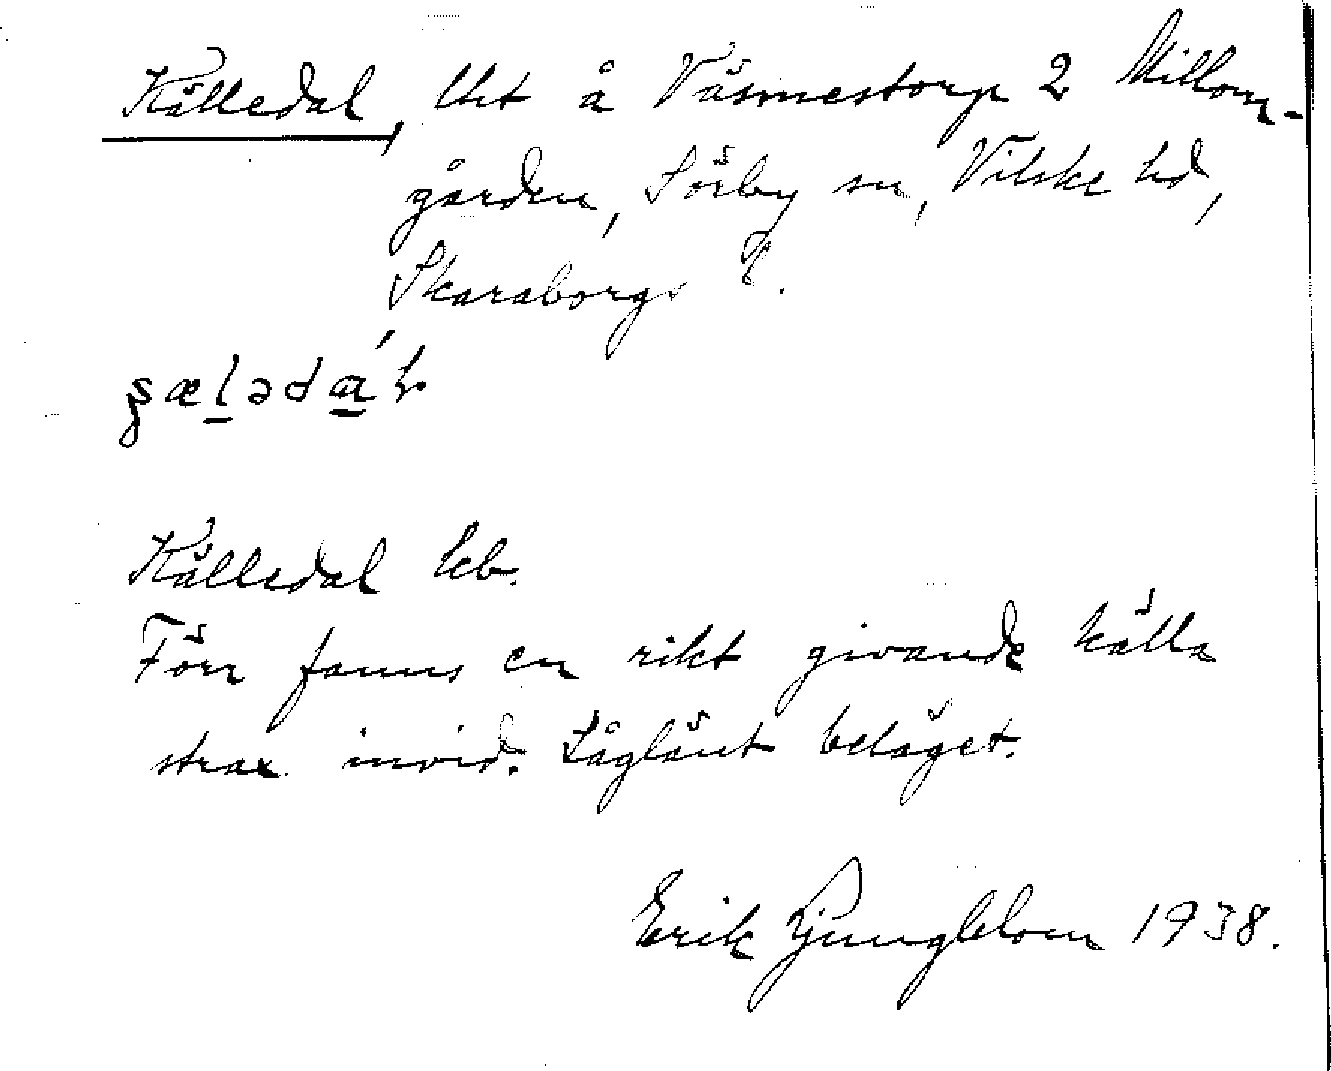 Källedal, lht å Väsmestorp 2 Millom-
gården, Sörby sn, Vilske hd,
Skaraborgs l.
Källedal kb.
Förr fanns en rikt givande källa
strax invid. Låglänt beläget.
Erik Ljungblom 1938.